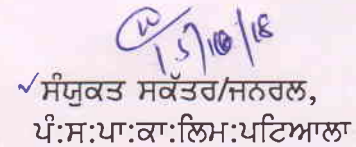 15/10/18
✓ਸੰਯੁਕਤ ਸਕੱਤਰ/ਜਨਰਲ,
ਪੰ:ਸ:ਪਾ:ਕਾ:ਲਿਮ:ਪਟਿਆਲਾ